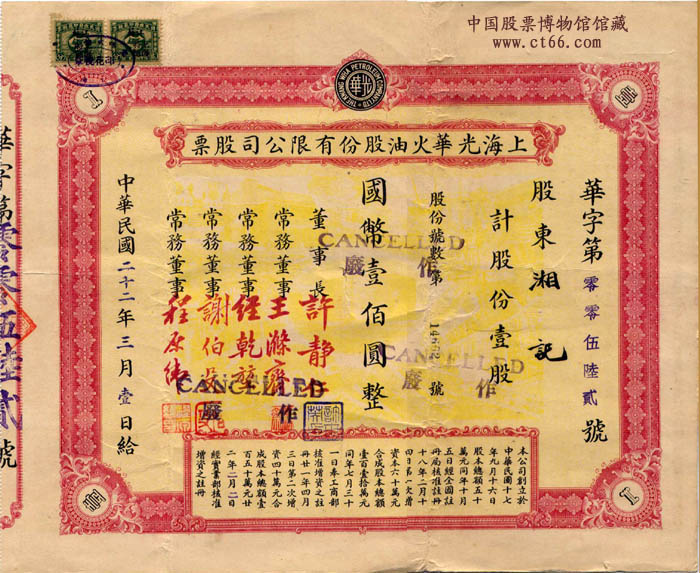 中国股票博物馆馆藏
www.ct66.com
THE KWONG WHA PETROLEUM COMPANY LTD
上海光華火油股份有限公司股票
華字第零零伍陸貳號
股東湘記
計股份壹股
股份號數第 號
國幣壹佰圓整
董事長 許靜仁
常務董事 王滌齋
常務董事 經乾
常務董事 謝伯
常務董事 程
中華民國二十二年三月壹日給
CANCELLED
作廢
CANCELLED
作廢
CANCELLED
作廢
本公司創立於
中華民國十七
年九月十六日
股本總額五十
萬元同年十月
五日經全國註
冊局核准註冊
十八年二月十
四日第一次增
資本六十萬元
合成股本總額
壹百壹拾萬元
同年七月三十
一日奉工商部
核准增資之註
冊廿一年四月
三日第二次增
資四十萬元合
成股本總額壹
百五十萬元廿
二年二月二日
經實業部核准
增資之註冊
華字第零零伍陸貳號
1
1